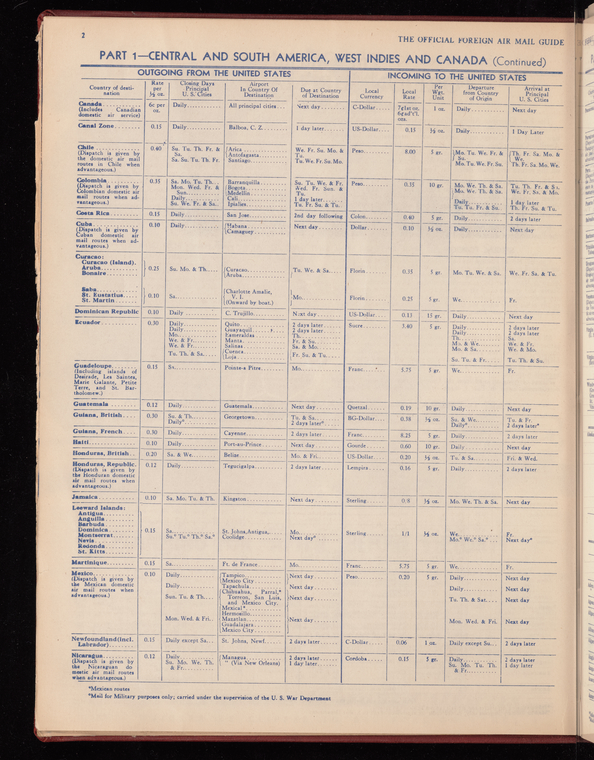 2
THE OFFICIAL FOREIGN AIR MAIL GUIDE
PART 1—CENTRAL AND SOUTH AMERICA, WEST INDIES AND CANADA (Continued)
OUTGOING FROM THE UNITED STATES
INCOMING TO THE UNITED STATES
Country of destination
Rate per ½ oz.
Closing Days Principal U. S. Cities
Airport In Country Of Destination
Due at Country of Destination
Local Currency
Local Rate
Per Wgt. Unit
Departure from Country of Origin
Arrival at Principal U. S. Cities
Canada (Includes Canadian domestic air service) 6c per oz. Daily All principal cities Next day C-Dollar 1 oz. Daily Next day
Canal Zone 0.15 Daily Balboa, C. Z. 1 day later US-Dollar 0.15 ½ oz. Daily 1 Day Later
Chile 0.40 Su. Tu. Th. Fr. & Sa. Arica We. Fr. Su. Mo. & Tu. Peso 8.00 5 gr. Mo. Tu. We. Fr. & Su. Th. Fr. Sa. Mo. & We.
(Dispatch is given by the domestic air mail routes in Chile when advantageous.)
Antofagasta
Sa. Su. Tu. Th. Fr. Santiago Tu. We. Fr. Sa. Mo. Mo. Tu. We. Fr. Su. Th. Fr. Sa. Mo. We.
Colombia 0.35 Sa. Mo. Tu. Th. Barranquilla Su. Tu. We. & Fr. Peso 0.35 10 gr. Mo. We. Th. & Sa. Tu. Th. Fr. & Su.
(Dispatch is given by Colombian domestic air mail routes when advantageous.)
Mon. Wed. Fr. & Sun. Bogota Wed. Fr. Sun. & Tu. Mo. We. Th. & Sa. We. Fr. Su. & Mo.
Medellin
Daily Cali 1 day later Daily 1 day later
Su. We. Fr. & Sa. Ipiales Tu. Fr. Su. & Tu. Tu. Tu. Fr. & Su. Th. Fr. Su. & Tu.
Costa Rica 0.15 Daily San Jose 2nd day following Colon 0.40 5 gr. Daily 2 days later
Cuba 0.10 Daily Habana Next day Dollar 0.10 ½ oz. Daily Next day
(Dispatch is given by Cuban domestic air mail routes when advantageous.)
Camaguey
Curacao:
Curacao (Island)
Aruba 0.25 Su. Mo. & Th. Curacao Tu. We. & Sa. Florin 0.35 5 gr. Mo. Tu. We. & Sa. We. Fr. Sa. & Tu.
Bonaire Aruba
Saba
St. Eustatius 0.10 Sa. Charlotte Amalie, V. I. (Onward by boat.) Mo. Florin 0.25 5 gr. We. Fr.
St. Martin
Dominican Republic 0.10 Daily C. Trujillo Next day US-Dollar 0.13 15 gr. Daily Next day
Ecuador 0.30 Daily Quito 2 days later Sucre 3.40 5 gr. Daily 2 days later
Daily Guayaquil 2 days later Daily 2 days later
Mo. Esmeraldas Th. Th. Sa.
We. & Fr. Manta Fr. & Su. Mo. & We. We. & Fr.
We. & Fr. Salinas Sa. & Mo. Mo. & Sa. We. & Mo.
Tu. Th. & Sa. Cuenca Loja Fr. Su. & Tu. Su. Tu. & Fr. Tu. Th. & Su.
Guadeloupe 0.15 Sa. Pointe-a Pitre Mo. Franc 5.75 5 gr. We. Fr.
(Including islands of Desirade, Les Saintes, Marie Galante, Petite Terre, and St. Bartholomew.)
Guatemala 0.12 Daily Guatemala Next day Quetzal 0.19 10 gr. Daily Next day
Guiana, British 0.30 Su. & Th. Georgetown Tu. & Sa. BG-Dollar 0.38 ½ oz. Su. & We. Tu. & Fr.
Daily* 2 days later* Daily* 2 days later*
Guiana, French 0.30 Daily Cayenne 2 days later Franc 8.25 5 gr. Daily 2 days later
Haiti 0.10 Daily Port-au-Prince Next day Gourde 0.60 10 gr. Daily Next day
Honduras, British 0.20 Sa. & We. Belize Mo. & Fri. US-Dollar 0.20 ½ oz. Tu. & Sa. Fri. & Wed.
Honduras, Republic 0.12 Daily Tegucigalpa 2 days later Lempira 0.16 5 gr. Daily 2 days later
(Dispatch is given by the Honduran domestic air mail routes when advantageous.)
Jamaica 0.10 Sa. Mo. Tu. & Th. Kingston Next day Sterling ½ oz. Mo. We. Th. & Sa. Next day
Leeward Islands:
Antigua
Anguilla
Barbuda
Dominica 0.15 Sa. St. Johns, Antigua, Mo. Sterling 1/1 ½ oz. We. Fr.
Montserrat Su.* Tu.* Th.* Sa.* Coolidge Next day* Mo.* We.* Sa.* Next day*
Nevis
Redonda
St. Kitts
Martinique 0.15 Sa. Ft. de France Mo. Franc 5.75 5 gr. We. Fr.
Mexico 0.10 Daily Tampico Next day Peso 0.20 5 gr. Daily Next day
(Dispatch is given by the Mexican domestic air mail routes when advantageous.)
Mexico City
Daily Tapachula Next day Daily Next day
Sun. Tu. & Th. Chihuahua, Parral,* Torreon, San Luis, and Mexico City. Next day Tu. Th. & Sat. Next day
Mexical*
Hermosillo
Mon. Wed. & Fri. Mazatlan Next day Mon. Wed. & Fri. Next day
Guadalajara
Mexico City
Newfoundland (Incl. Labrador) 0.15 Daily except Sa. St. Johns, Newf. 2 days later C-Dollar 0.06 1 oz. Daily except Su. 2 days later
Nicaragua 0.12 Daily Managua 2 days later Cordoba 0.15 5 gr. Daily 2 days later
(Dispatch is given by the Nicaraguan domestic air mail routes when advantageous.)
Su. Mo. We. Th. & Fr. " (Via New Orleans) 1 day later Su. Mo. Tu. Th. & Fr. 1 day later
*Mexican routes
*Mail for Military purposes only; carried under the supervision of the U. S. War Department